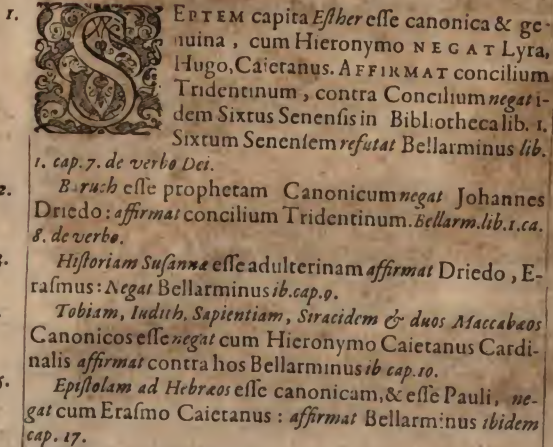 1. SEPTEM capita Esther esse canonica & ge-
nuina, cum Hieronymo NEGAT Lyra,
Hugo, Caietanus. AFFIRMAT concilium
Tridentinum, contra Concilium negat i-
dem Sixtus Senensis in Bibliotheca lib. 1.
Sixtum Senensem refutat Bellarminus lib.
1. cap. 7. de verbo Dei.
2. Baruch esse prophetam Canonicum negat Johannes
Driedo: affirmat concilium Tridentinum. Bellarm. lib. 1. ca.
8. de verbo.
Historiam Susannæ esse adulterinam affirmat Driedo, E-
rasmus: Negat Bellarminus ib. cap. 9.
Tobiam, Iudith, Sapientiam, Siracidem & duos Maccabæos
Canonicos esse negat cum Hieronymo Caietanus Cardi-
nalis affirmat contra hos Bellarminus ib cap. 10.
5. Epistolam ad Hebræos esse canonicam, & esse Pauli, ne-
gat cum Erasmo Caietanus: affirmat Bellarminus ibidem
cap. 17.